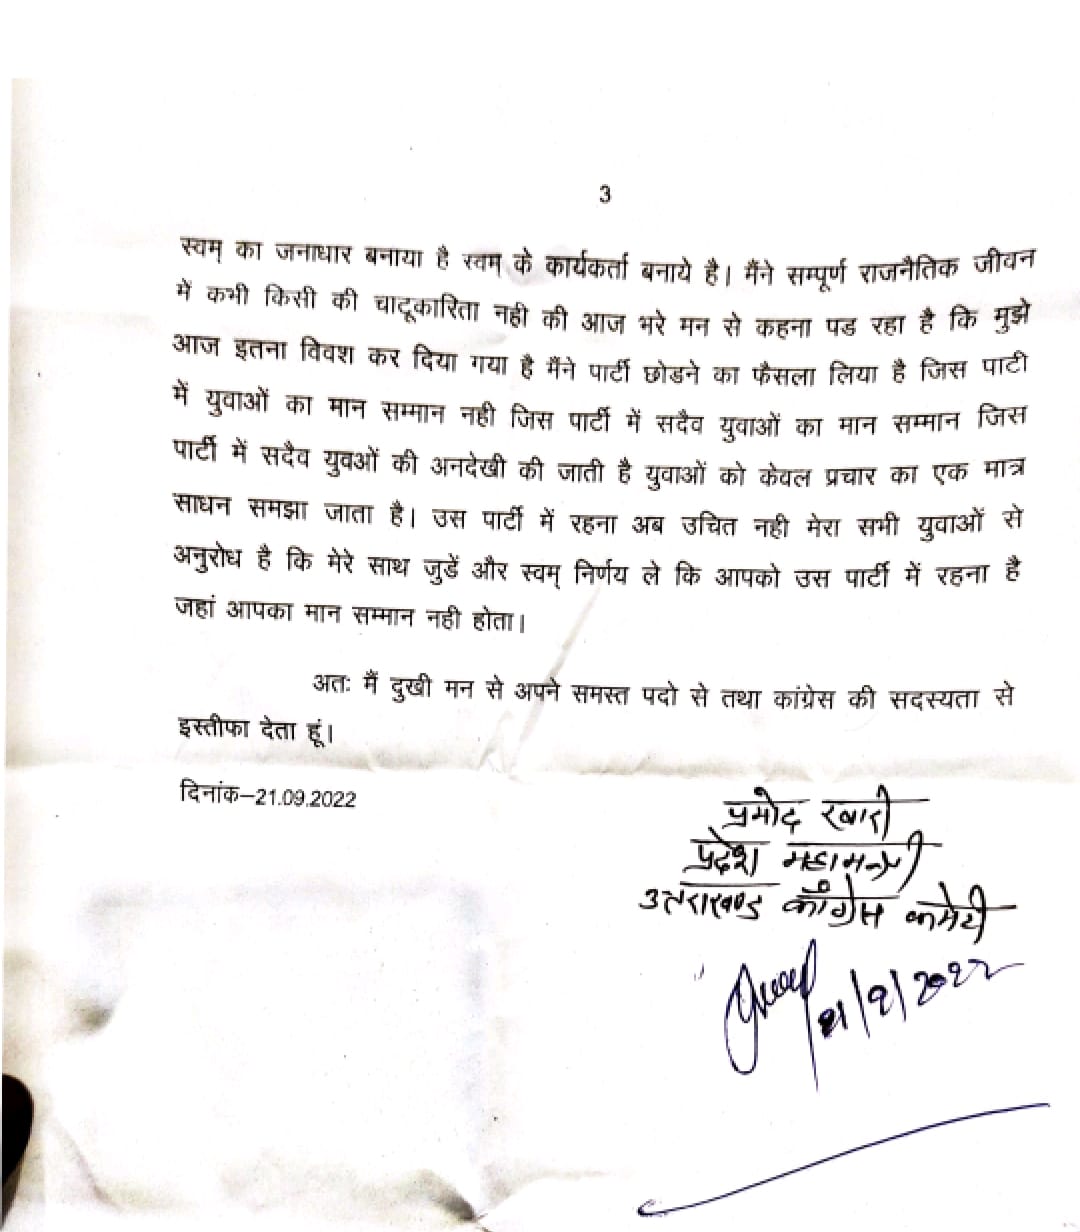 3
स्वम् का जनाधार बनाया है स्वम् के कार्यकर्ता बनाये है। मैंने सम्पूर्ण राजनैतिक जीवन
में कभी किसी की चाटूकारिता नही की आज भरे मन से कहना पड रहा है कि मुझे
आज इतना विवश कर दिया गया है मैंने पार्टी छोडने का फैसला लिया है जिस पाटी
में युवाओं का मान सम्मान नही जिस पार्टी में सदैव युवाओं का मान सम्मान जिस
पार्टी में सदैव युवओं की अनदेखी की जाती है युवाओं को केवल प्रचार का एक मात्र
साधन समझा जाता है। उस पार्टी में रहना अब उचित नही मेरा सभी युवाओं से
अनुरोध है कि मेरे साथ जुडें और स्वम् निर्णय ले कि आपको उस पार्टी में रहना है
जहां आपका मान सम्मान नही होता।
अतः मैं दुखी मन से अपने समस्त पदो से तथा कांग्रेस की सदस्यता से
इस्तीफा देता हूं।
दिनांक–21.09.2022
प्रमोद खारी
प्रदेश महामन्त्री
उत्तराखण्ड काँग्रेस कमेटी
21/9/2022